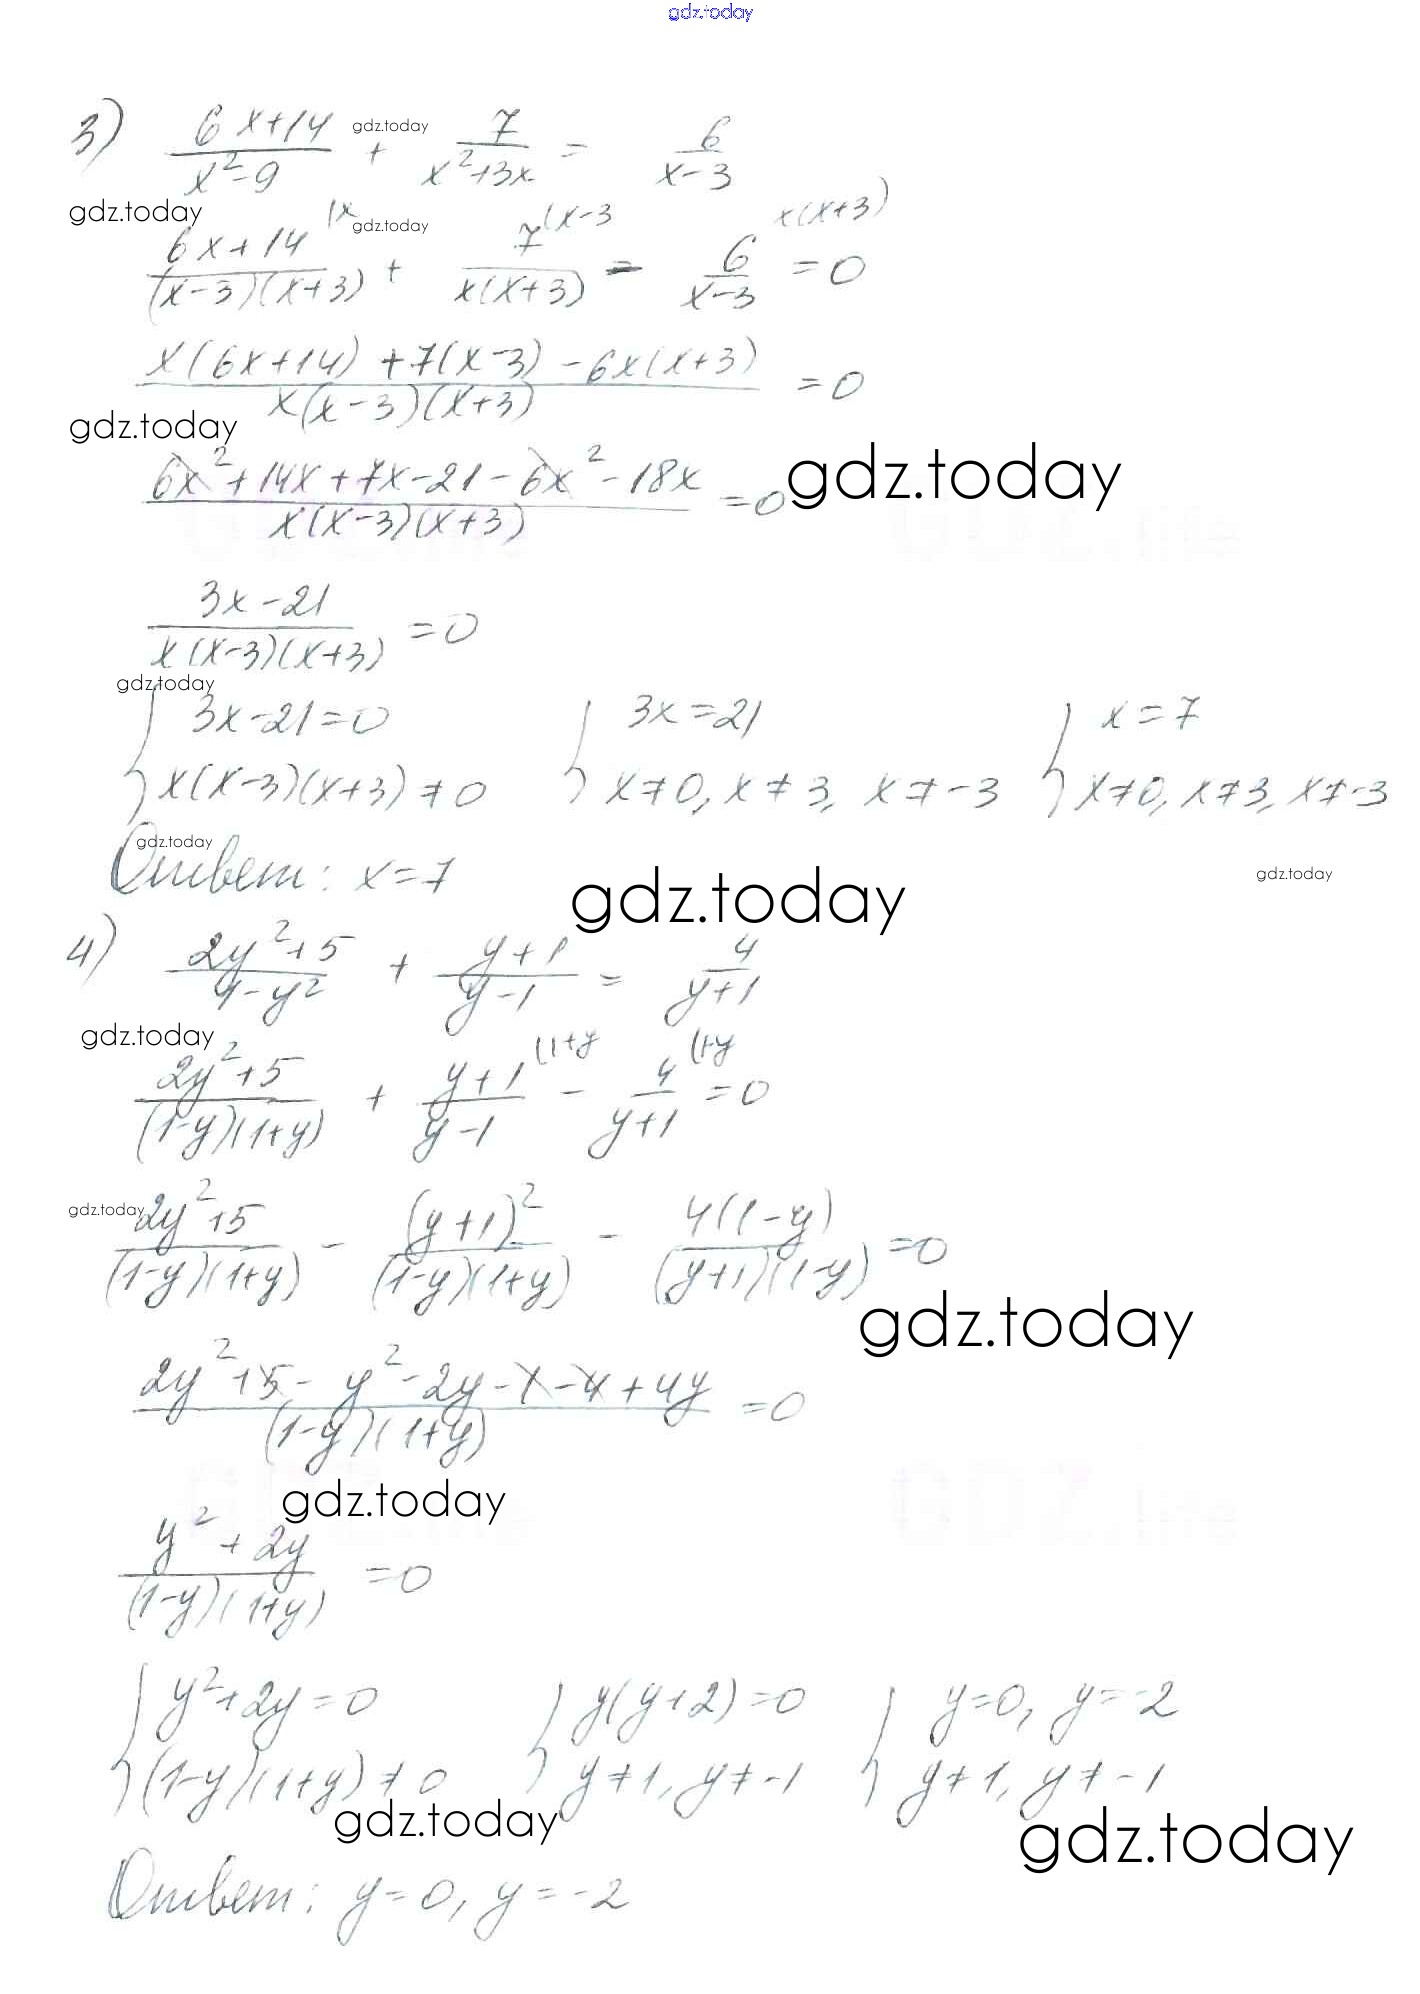 gdz.today
3) (6x+14)/(x²-9) + 7/(x²+3x) = 6/(x-3)
gdz.today
gdz.today
(6x+14)/((x-3)(x+3)) (x + 7/(x(x+3)) (x-3 - 6/(x-3) x(x+3) = 0
gdz.today
(x(6x+14)+7(x-3)-6x(x+3))/(x(x-3)(x+3)) = 0
gdz.today
(6x²+14x+7x-21-6x²-18x)/(x(x-3)(x+3)) = 0
gdz.today
(3x-21)/(x(x-3)(x+3)) = 0
gdz.today
{ 3x-21=0 { 3x=21 { x=7
x(x-3)(x+3)≠0 x≠0, x≠3, x≠-3 x≠0, x≠3, x≠-3
gdz.today
Ответ: x=7
gdz.today
gdz.today
4) (2y²+5)/(1-y²) + (y+1)/(y-1) = 4/(y+1)
gdz.today
(2y²+5)/((1-y)(1+y)) + (y+1)/(y-1) (1+y - 4/(y+1) (1-y = 0
gdz.today
(2y²+5)/((1-y)(1+y)) - (y+1)²/((1-y)(1+y)) - 4(1-y)/((y+1)(1-y)) = 0
gdz.today
(2y²+5-y²-2y-1-4+4y)/((1-y)(1+y)) = 0
gdz.today
(y²+2y)/((1-y)(1+y)) = 0
{ y²+2y=0 { y(y+2)=0 { y=0, y=-2
(1-y)(1+y)≠0 y≠1, y≠-1 y≠1, y≠-1
gdz.today
gdz.today
Ответ: y=0, y=-2